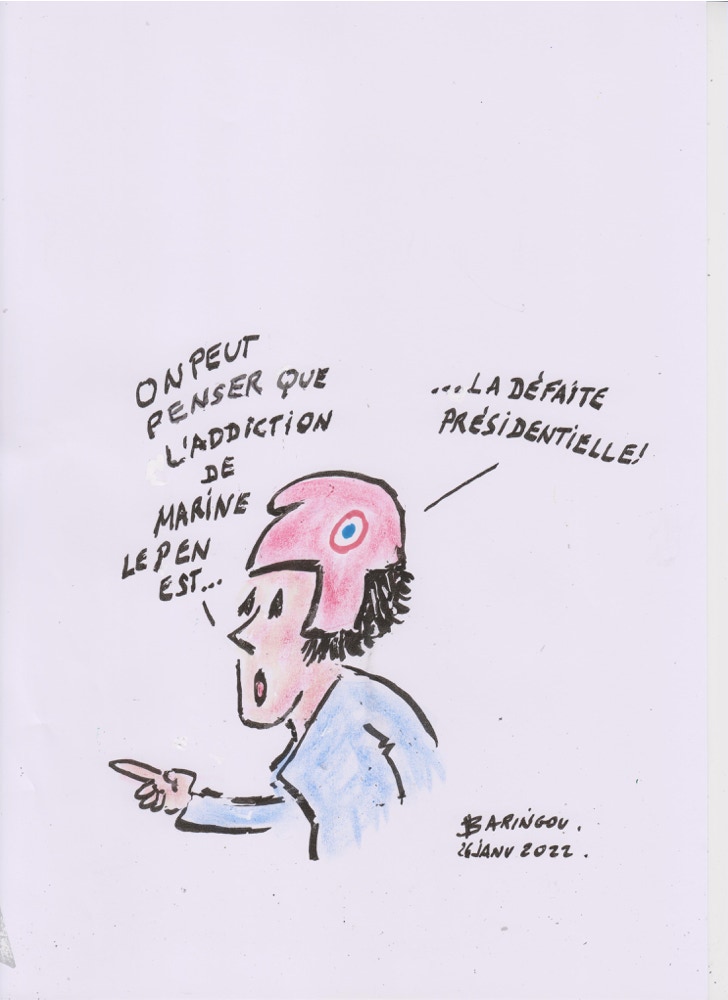 ON PEUT
PENSER QUE
L'ADDICTION
DE
MARINE
LE PEN
EST...
...LA DÉFAITE
PRÉSIDENTIELLE!
BARINGOU.
26 JANV 2022.